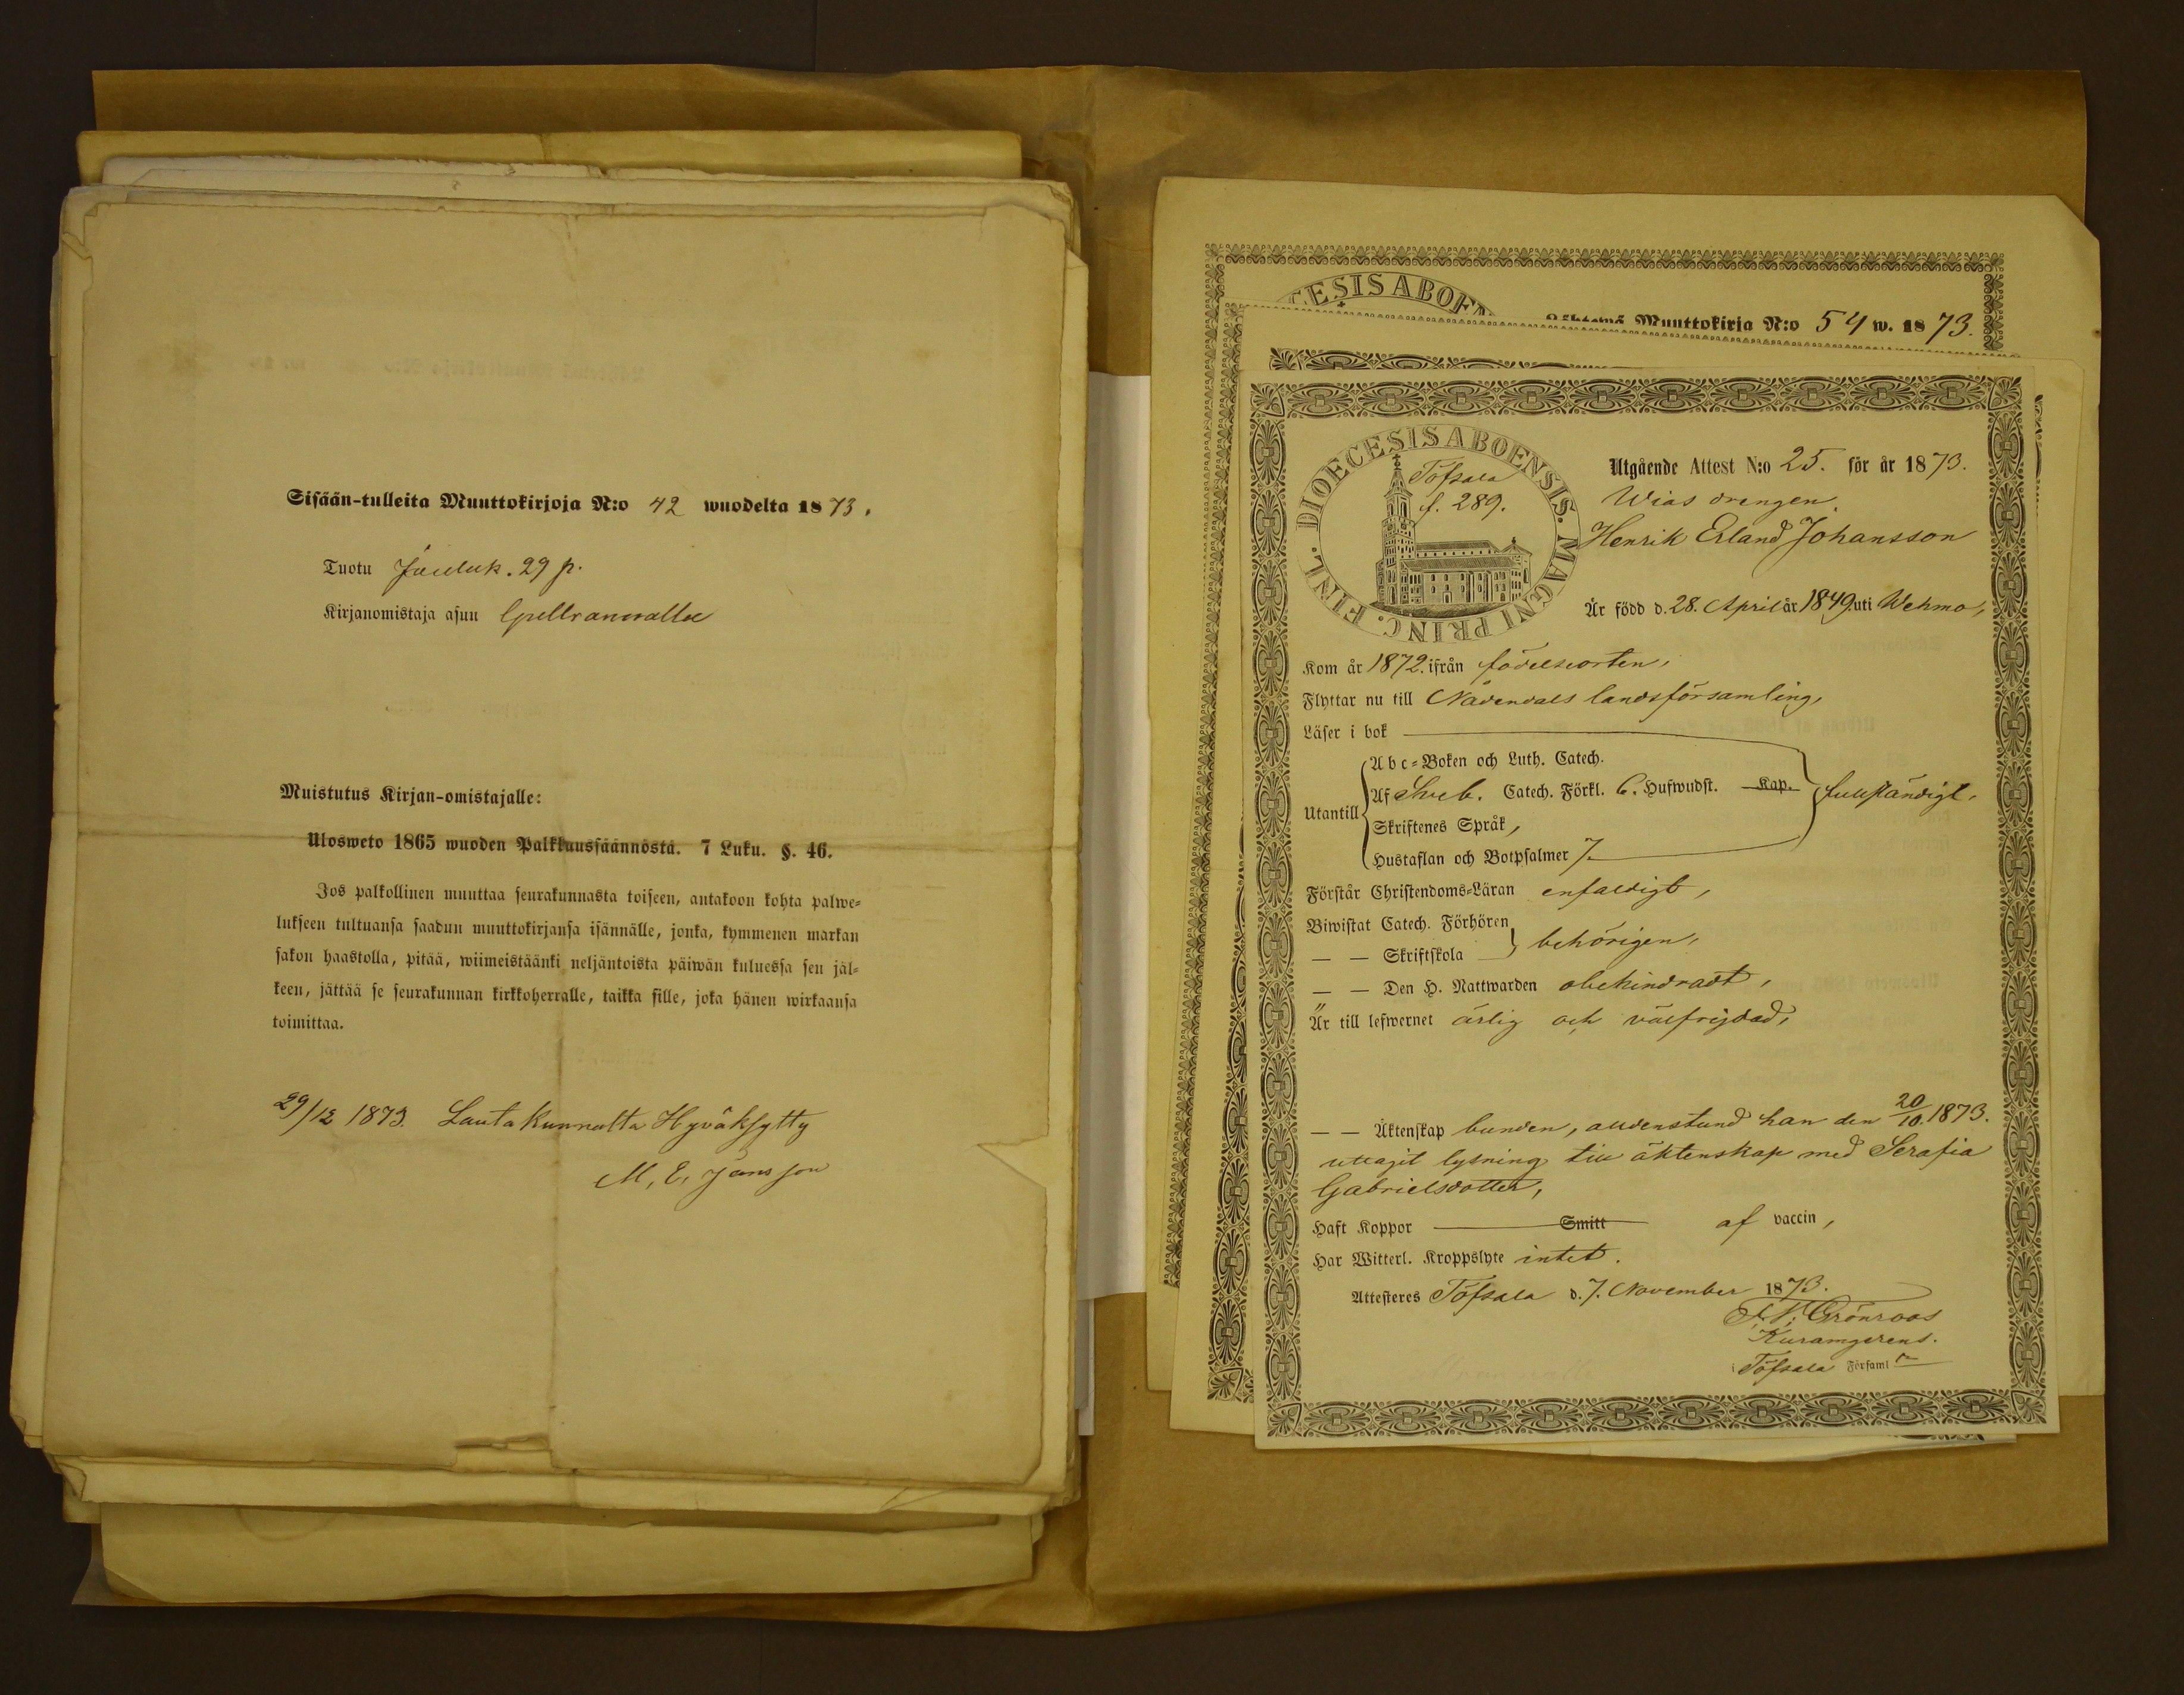 Sisään-tulleita Muuttokirjoja N:o 42 wuodelta 1873.
Tuotu Jouluk. 29 p.
Kirjanomistaja asuu
Muistutus Kirjan-omistajalle:
Ulosweto 1865 wuoden Palkkuusjäännöstä. 7 Luku. §. 46.
Jos palkollinen muuttaa seurakunnasta toiseen, antakoon kohta palwe=
lukseen tultuansa saadun muuttokirjansa isännälle, jonka, kymmenen markan
sakon haastolla, pitää, wiimeistäänki neljäntoista päiwän kuluessa sen jäl=
keen, jättää se seurakunnan kirkkoherralle, taikka sille, joka hänen wirkaansa
toimittaa.
29/12 1873. Lautakunnalta Hyväksytty
M. E. Jansson
CESIS ABOEN
Muuttokirja N:o 54 w. 1873.
DIOECESIS ABOENSIS. MAGNI PRINC. FINL.
Töfsala
f. 289.
Utgående Attest N:o 25. för år 1873.
Wias drengen
Henrik Erland Johansson
Är född d. 28. April år 1849. uti Wehmo,
Kom år 1872. ifrån födelseorten,
Flyttar nu till Nådendals landsförsamling,
Läser i bok
Utantill
Abc=Boken och Luth. Catech.
Af Sveb. Catech. Förkl. 6. Hufwudst. Kap.
fullständigt,
Skriftenes Språk,
Hustaflan och Botpsalmer 7.
Förstår Christendoms=Läran enfaldigt,
Biwistat Catech. Förhören
behörigen,
— — Skriftskola
— — Den H. Nattwarden obehindradt,
Är till lefwernet ärlig och välfrejdad,
— — Äktenskap bunden, alldenstund han den 20/10. 1873.
uttagit lysning till äktenskap med Serafia
Gabrielsdotter,
Haft Koppor Smitt af vaccin,
Har Witterl. Kroppslyte intet.
Attesteres Töfsala d. 7. November 1873.
Grönroos
Kuramgerens.
i Töfsala Församl